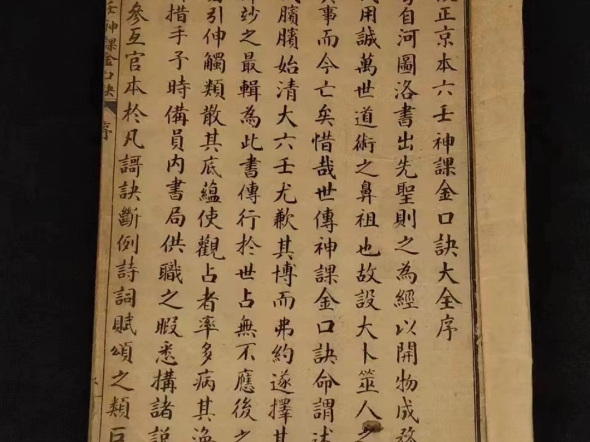 正京本六壬神課金口訣大全序
自河圖洛書出先聖則之為經以開物成務
用誠萬世道術之鼻祖也故設大卜筮人之
其事而今亡矣惜哉世傳神課金口訣命謂
臏臏始清大六壬尤歉其博而弗約遂擇其
妙之最輯為此書傳行於世占無不應後之
引伸觸類散其底蘊使觀占者率多病其
措手予時備員內書局供職之暇悉搆諸
參互官本於凡謌訣斷例詩詞賦頌之類
壬神課金口訣 序